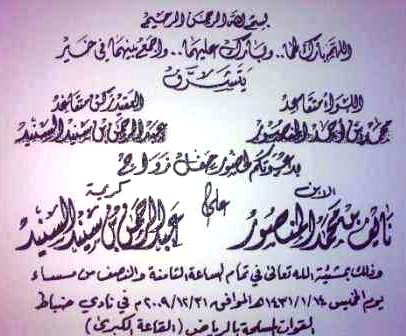 بسم الله الرحمن الرحيم
اللهم بارك لهما.. وبارك عليهما.. واجمع بينهما في خير
يتشرف
اللواء متقاعد العقيد ركن متقاعد
محمد بن أحمد المنصور عبدالرحمن بن سنيد السنيد
بدعوتكم لحضور حفل زواج
الابن كريمة
نائف بن محمد المنصور على عبدالرحمن بن سنيد السنيد
وذلك بمشيئة الله تعالى في تمام الساعة الثامنة والنصف من مساء
يوم الخميس ١٤٣١/١/١٤هـ الموافق ٢٠٠٩/١٢/٣١م في نادي ضباط
القوات المسلحة بالرياض (القاعة الكبرى)